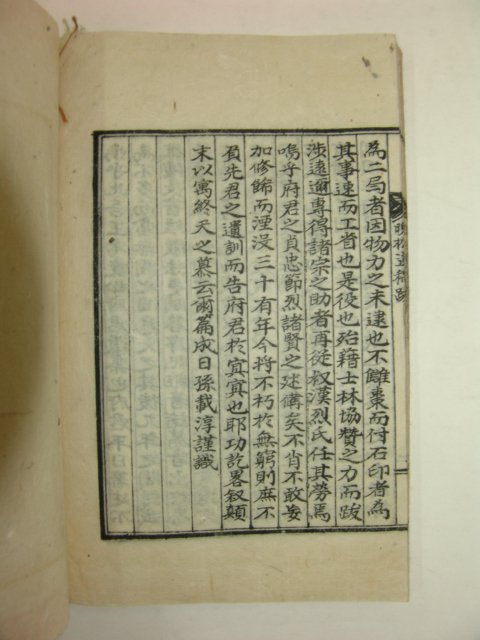 晩松遺稿跋
為二局者因物力之未逮也不雕棗而付石印者為
其事速而工省也是役也殆藉士林協贊之力而跋
涉遠邇專得諸宗之助者再從叔漢烈氏任其勞焉
嗚乎府君之貞忠節烈諸賢之述備矣不肖不敢妄
加修飾而湮没三十有年今將不朽於無窮則庶不
負先君之遺訓而告府君於㝠㝠也耶功訖畧叙顛
末以寓終天之慕云爾篇成日孫載淳謹識